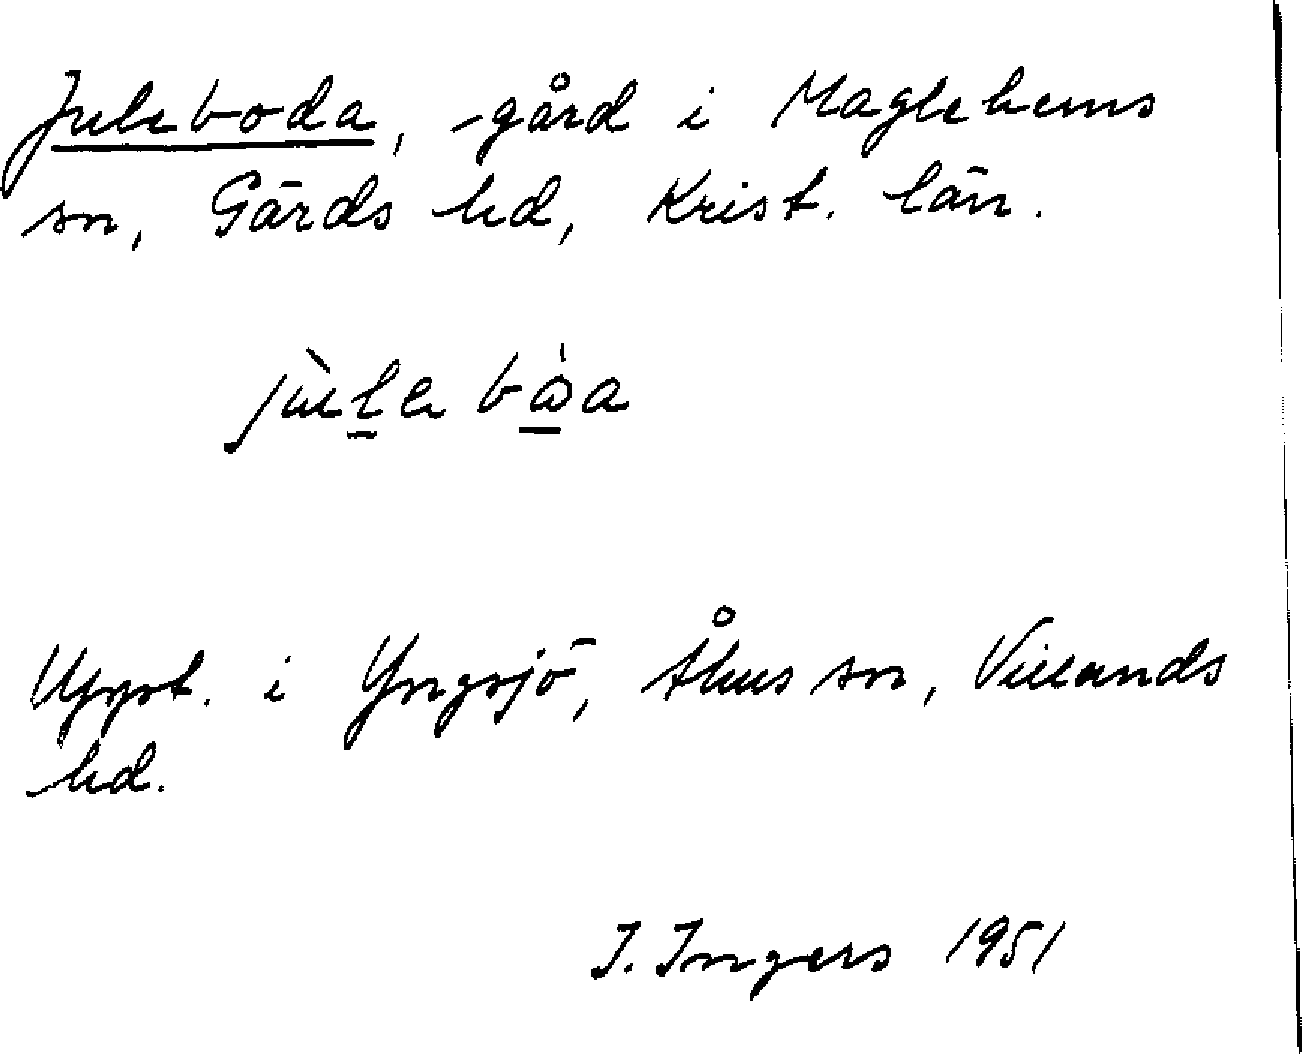 Juleboda, -gård i Maglehems
sn, Gärds hd, Krist. län.
jùle bò̱a
Uppt. i Yngsjö, Åhus sn, Villands
hd.
I. Ingers 1951